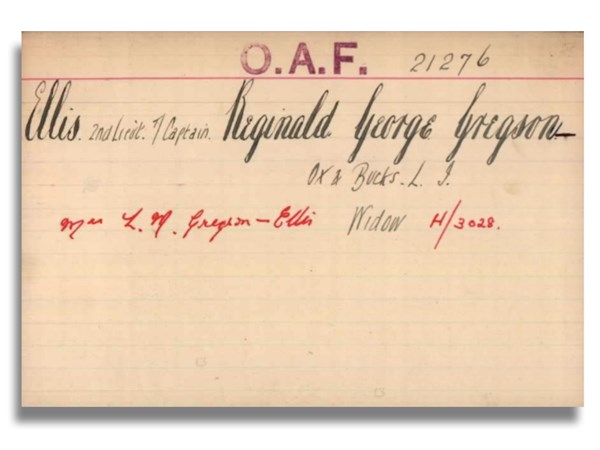 O.A.F. 21276
Ellis. 2nd Lieut. T/Captain. Reginald George Gregson-
Ox & Bucks. L. I.
Mrs L. M. Gregson-Ellis Widow H/3028.